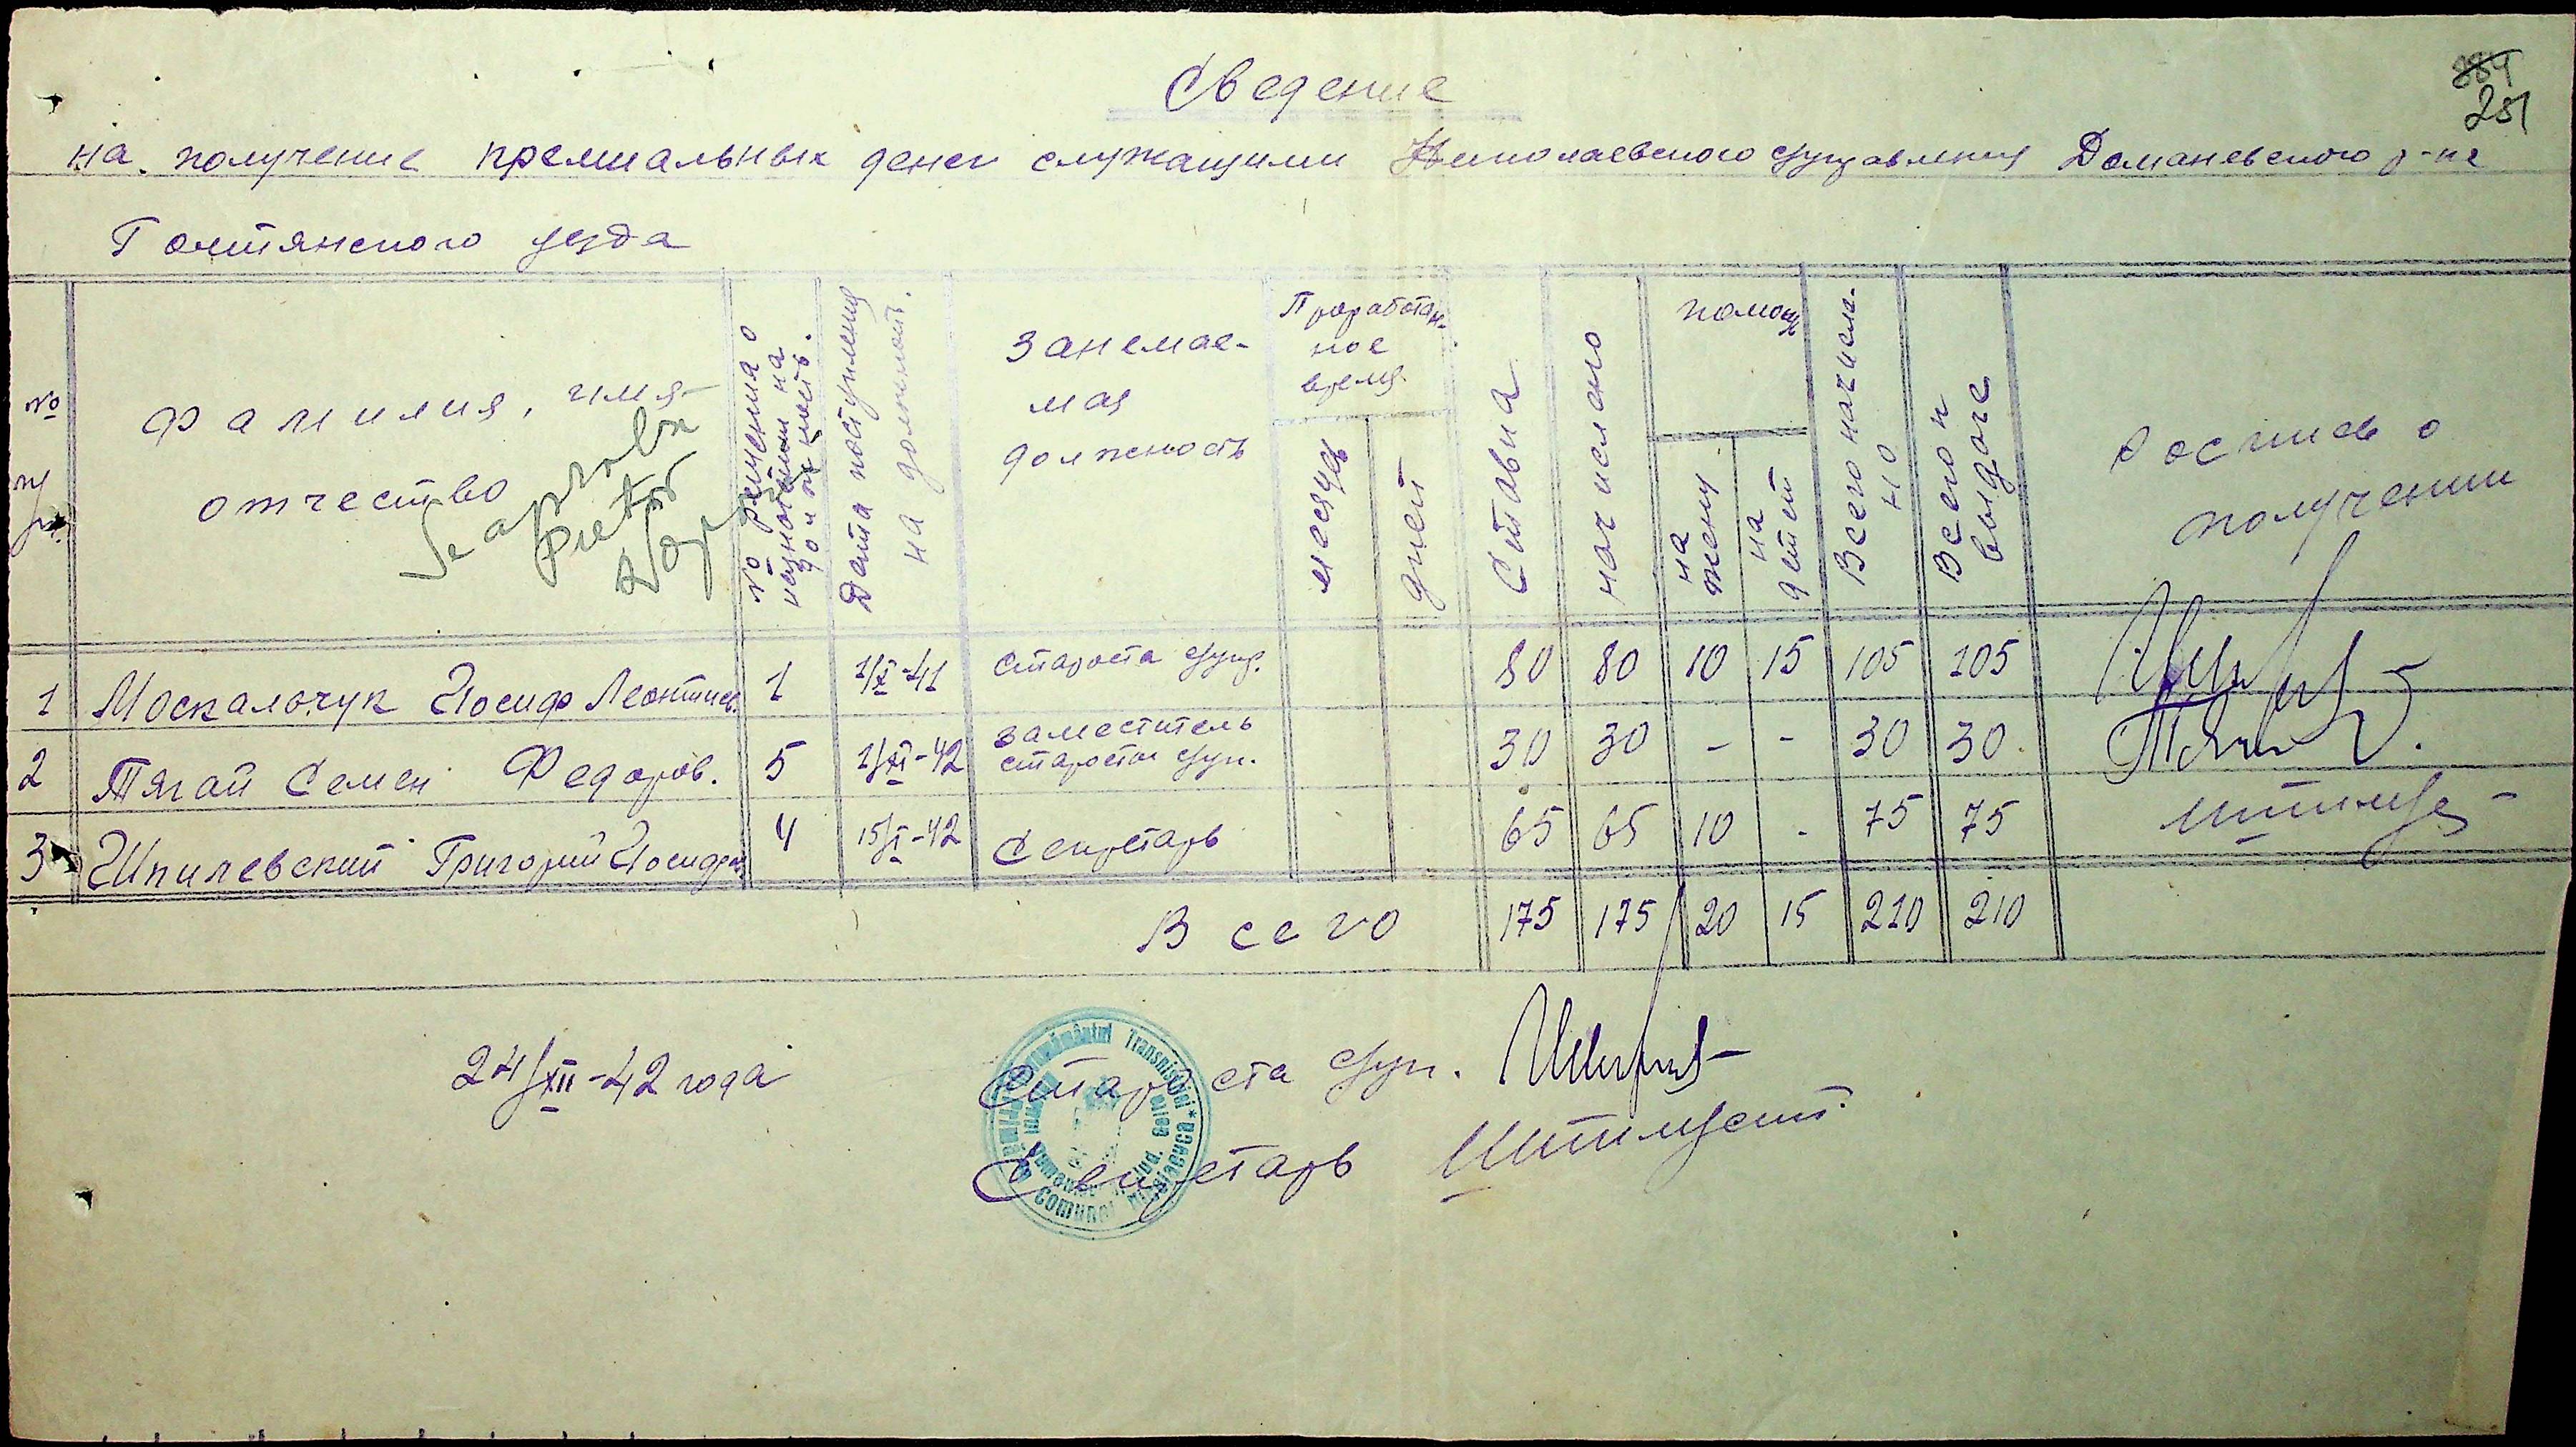 Сведение
251
на получение премиальных денег служащими Николаевского с/управления Доманевского р-на
Голтянского уезда
№ п/п.
Фамилия, имя
отчество
Se aprobă
Pretor
№ решения о назначении на должность.
Дата поступления на должность.
Занемае-
мая
должность
Проработан-
ное
время.
месяцев
дней
Ставка
начислено
помощь
на жену
на детей
Всего начисле-
но
Всего к выдаче
Роспись о
получении
1 Москальчук Иосиф Леонтиев. 1 1/X-41 Староста с/упр. 80 80 10 15 105 105
2 Тягай Семен Федоров. 5 1/XI-42 заместитель старосты с/уп. 30 30 - - 30 30.
3 Шпилевский Григорий Иосифов. 4 15/X-42 Секретарь 65 65 10 - 75 75
Всего 175 175 20 15 210 210
24/XII-42 года
Староста с/уп.
Секретарь
Transnistriei
Comunei